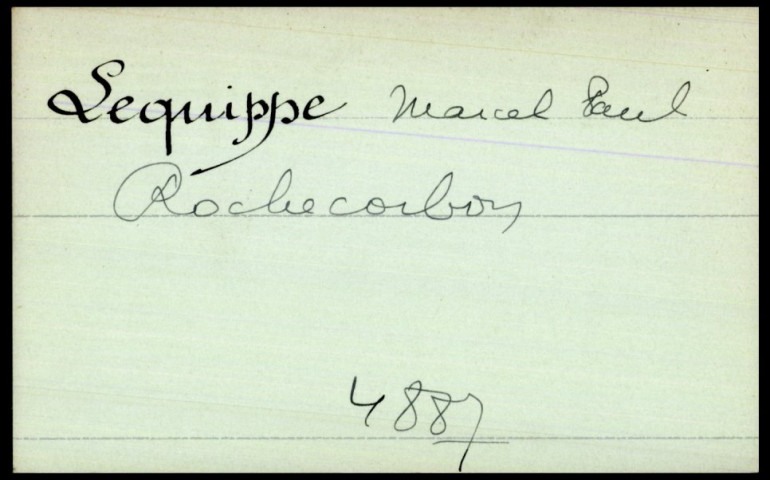 Lequippe Marcel Paul
Rochecorbon
4887